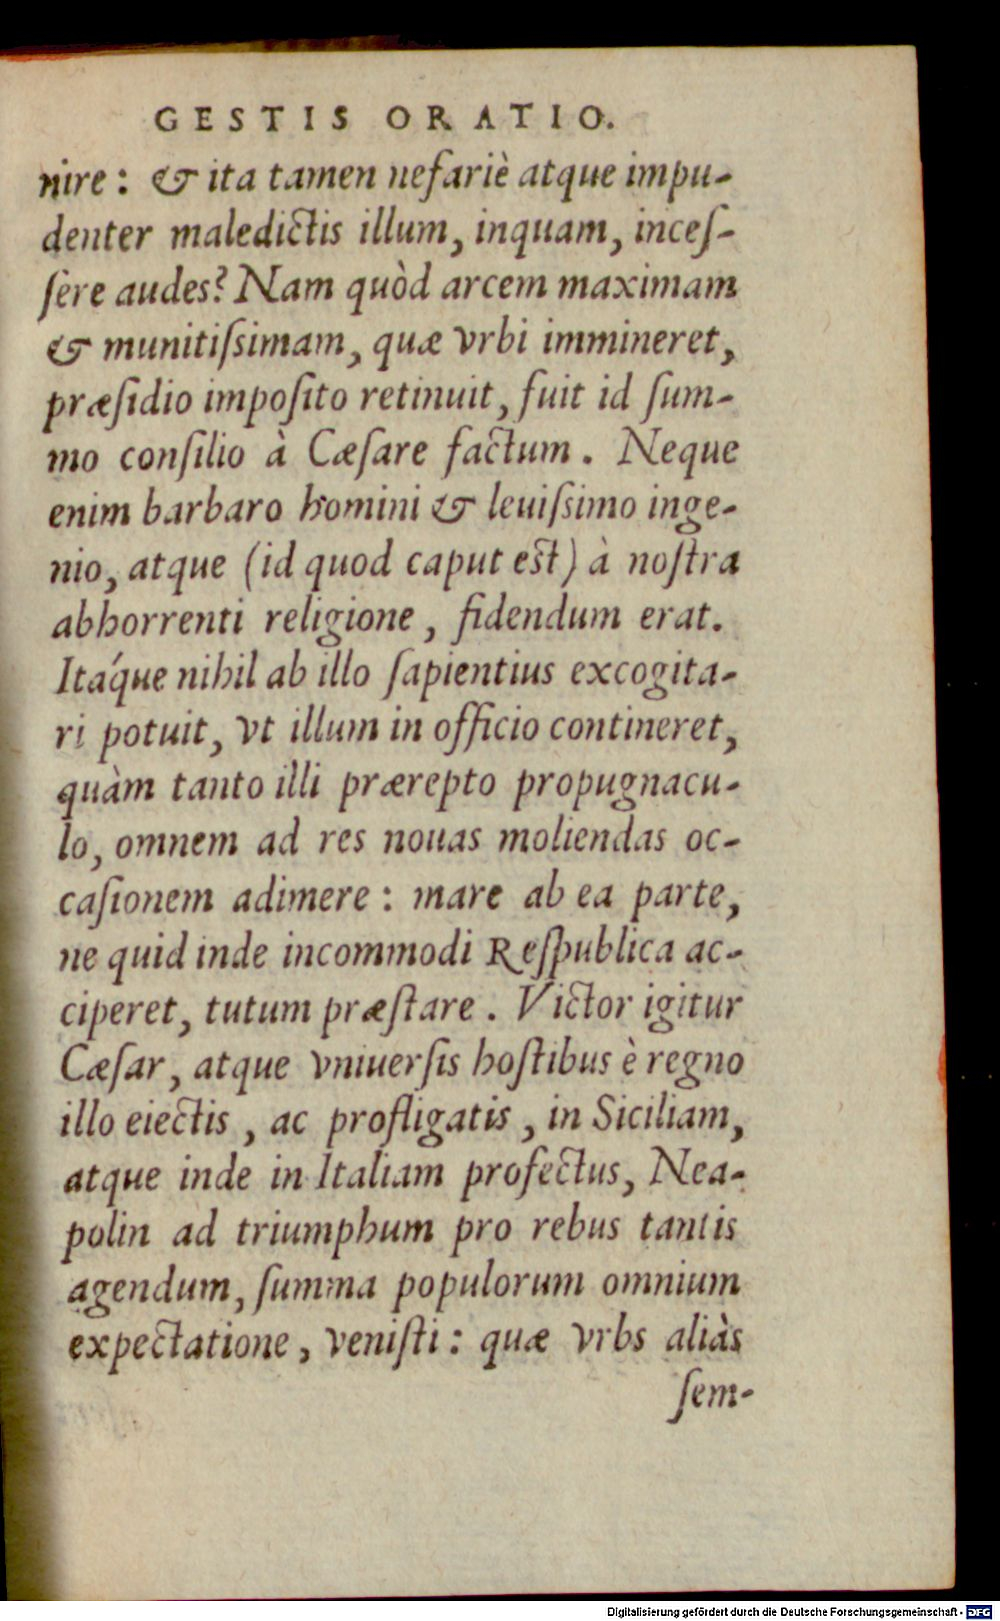 GESTIS ORATIO.
nire: & ita tamen nefariè atque impu-
denter maledictis illum, inquam, inceſ-
ſere audes? Nam quòd arcem maximam
& munitiſsimam, quæ vrbi immineret,
præſidio impoſito retinuit, fuit id ſum-
mo conſilio à Cæſare factum. Neque
enim barbaro homini & leuiſsimo inge-
nio, atque (id quod caput est) à noſtra
abhorrenti religione, fidendum erat.
Itáque nihil ab illo ſapientius excogita-
ri potuit, vt illum in officio contineret,
quàm tanto illi prærepto propugnacu-
lo, omnem ad res nouas moliendas oc-
caſionem adimere: mare ab ea parte,
ne quid inde incommodi Reſpublica ac-
ciperet, tutum præſtare. Victor igitur
Cæſar, atque vniuerſis hoſtibus è regno
illo eiectis, ac profligatis, in Siciliam,
atque inde in Italiam profectus, Nea-
polin ad triumphum pro rebus tantis
agendum, ſumma populorum omnium
expectatione, veniſti: quæ vrbs aliàs
ſem-
Digitalisierung gefördert durch die Deutsche Forschungsgemeinschaft - DFG